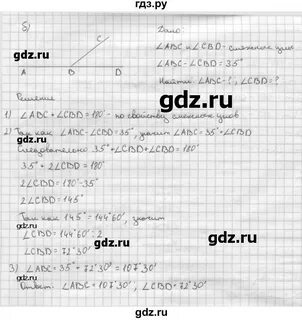 ГДЗ.РУ
б)
Дано:
C
∠ABC и ∠CBD - смежные углы
∠ABC - ∠CBD = 35°
A B D
Найти: ∠ABC - ?, ∠CBD = ?
Решение
gdz.ru
1) ∠ABC + ∠CBD = 180° - по свойству смежных углов
2) Так как ∠ABC - ∠CBD = 35°, значит ∠ABC = 35° + ∠CBD
Следовательно 35° + ∠CBD + ∠CBD = 180°
35° + 2∠CBD = 180°
2∠CBD = 180° - 35°
2∠CBD = 145°
gdz.ru
Так как 145° = 144°60', значит
∠CBD = 144°60' : 2
∠CBD = 72°30'
3) ∠ABC = 35° + 72°30' = 107°30'
Ответ: ∠ABC = 107°30', ∠CBD = 72°30'
gdz.ru